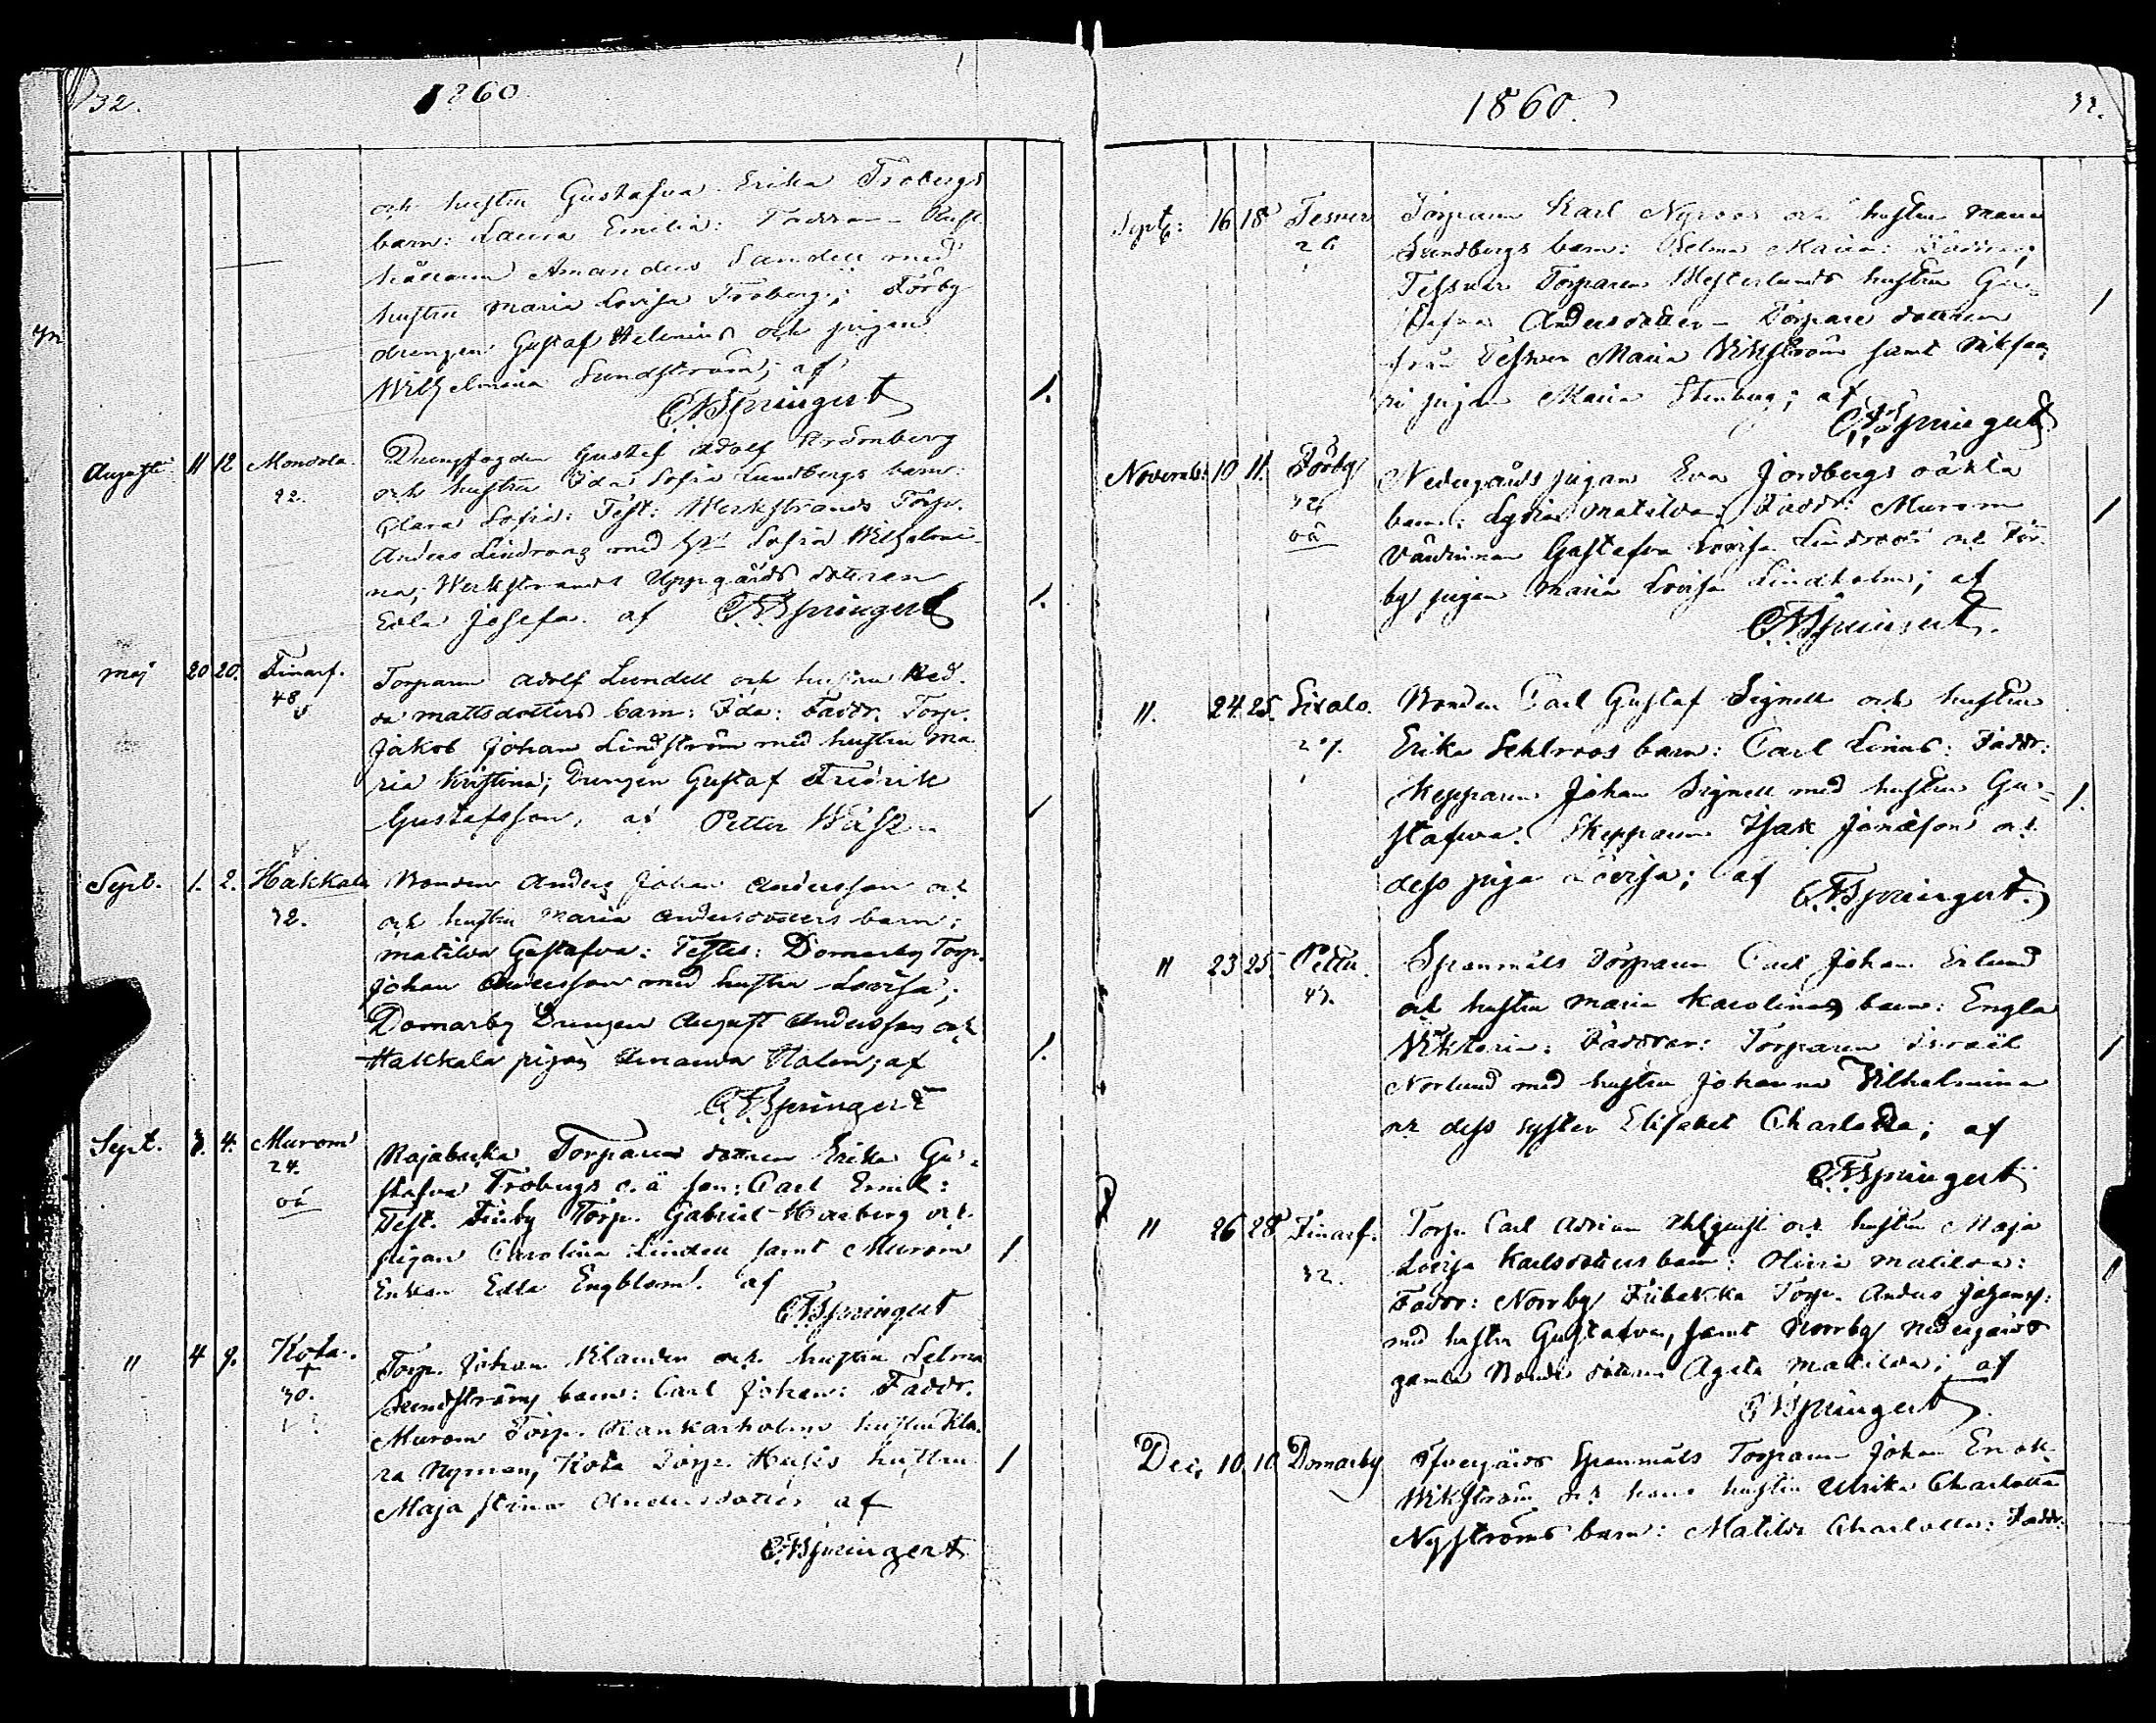 32.
1860
och hustru Gustafva Erika Trobergs
barn: Laura Emilia:
hållaren Amandus Sandell med
hustru Maria Lovisa Troberg; Förby
drengen Gustaf Helenius och pigan
Wilhelmina Sundström; af
CFSpringert
Augusti 11 12 Monoola Drengfogden Gustaf Adolf Strömberg
32. och hustru Ida Sofia Lundbergs barn:
Clara Sofia: Test: Werkstrands Torp.
Anders Lindroos med Sofia Wilhelmi-
na; Werkstrands Uppgårds dottren
Edla Josefa. af CFSpringert
maj 20 20. Finarf. Torparen Adolf Lundell och hustru Hed-
48 da Mattsdotters barn: Ida: Faddr. Torp.
Jakob Johan Lindström med hustru Ma-
ria Kristina; Drengen Gustaf Fredrik
Gustafsson, af Petter
Sept. 1. 2. Hakkala Bonden Anders Johan Andersson och
32. och hustru Maria Andersdotters barn:
Matilda Gustafva: Testes: Domarby Torp.
Johan Andersson med hustru Lovisa;
Domarby Drengen August Andersson och
Hakkala pigan Amanda Holm; af
CFSpringert
Sept. 3. 4. Murom Rajabacka Torparen dottren Erika Gu-
24. stafva Trobergs o.ä son: Carl Ernik:
oä Test. Finby Torp. Gabriel Harberg och
pigan Carolina Lindell samt Murom
Enkan Edla Engblom. af
CFSpringert
" 4 9. Kota. Torp. Johan Klander och hustru Selma
30. Sundströms barn: Carl Johan: Faddr.
Murom Torp. Rankarholms hustru Kla-
ra Nyman, Kota Torp. hustru
Maja Stina Andersdotter af
CFSpringert
1860.
33.
Sept: 16 18 Tesver Torparen Karl Nyroos och hustru Maria
26 Sundbergs barn: Selma Maria: Faddrar;
Tessver Torparen Westerlunds hustru Gu-
stafva Andersdotter - Torpare dottren
från Tessver Maria Wikström samt
pigan Maria Stenberg; af
CFSpringert
Novemb: 10 11. Förby Nedergårds pigan Eva Jordbergs oäkta
32 barn: Lydia Matilda: Faddr: Murom
oä Värdinnan Gustafva Lovisa Lindroos och För-
by pigan Maria Lovisa Lindholm; af
CFSpringert.
". 24. 25. Sixalo. Bonden Carl Gustaf Signell och hustru
27. Erika Sehlroos barn: Carl Linus: Faddr:
Skepparen Johan Signell med hustru Gu-
stafva. Skepparen Isak Jonasson och
dess piga Lovisa; af CFSpringert.
" 23 25. Pettu. Spanmåls Torparen Carl Johan Erlund
43. och hustru Maria Karolinas barn: Engla
Viktoria: Faddrar: Torparen Israël
Norlund med hustru Johanna Vilhelmina
och dess syster Elisabet Charlotta; af
CFSpringert
" 26 28 Finarf. Torp. Carl Adrian Ahlqvist och hustru Maja
32. Lovisa Karlsdotters barn: Olivia Matilda:
Faddr: Norrby Fribacka Torp. Anders Johanss:
med hustru Gustafva, samt Norrby Nedergårds
gamla Bonde dottren Agata Matilda; af
CFSpringert
Dec. 10. 10 Domarby Öfvergårds Spanmåls Torparen Johan Enok
Wikström och hans hustru Ulrika Charlotta
Nyströms barn: Matilda Charlotta: Faddr: